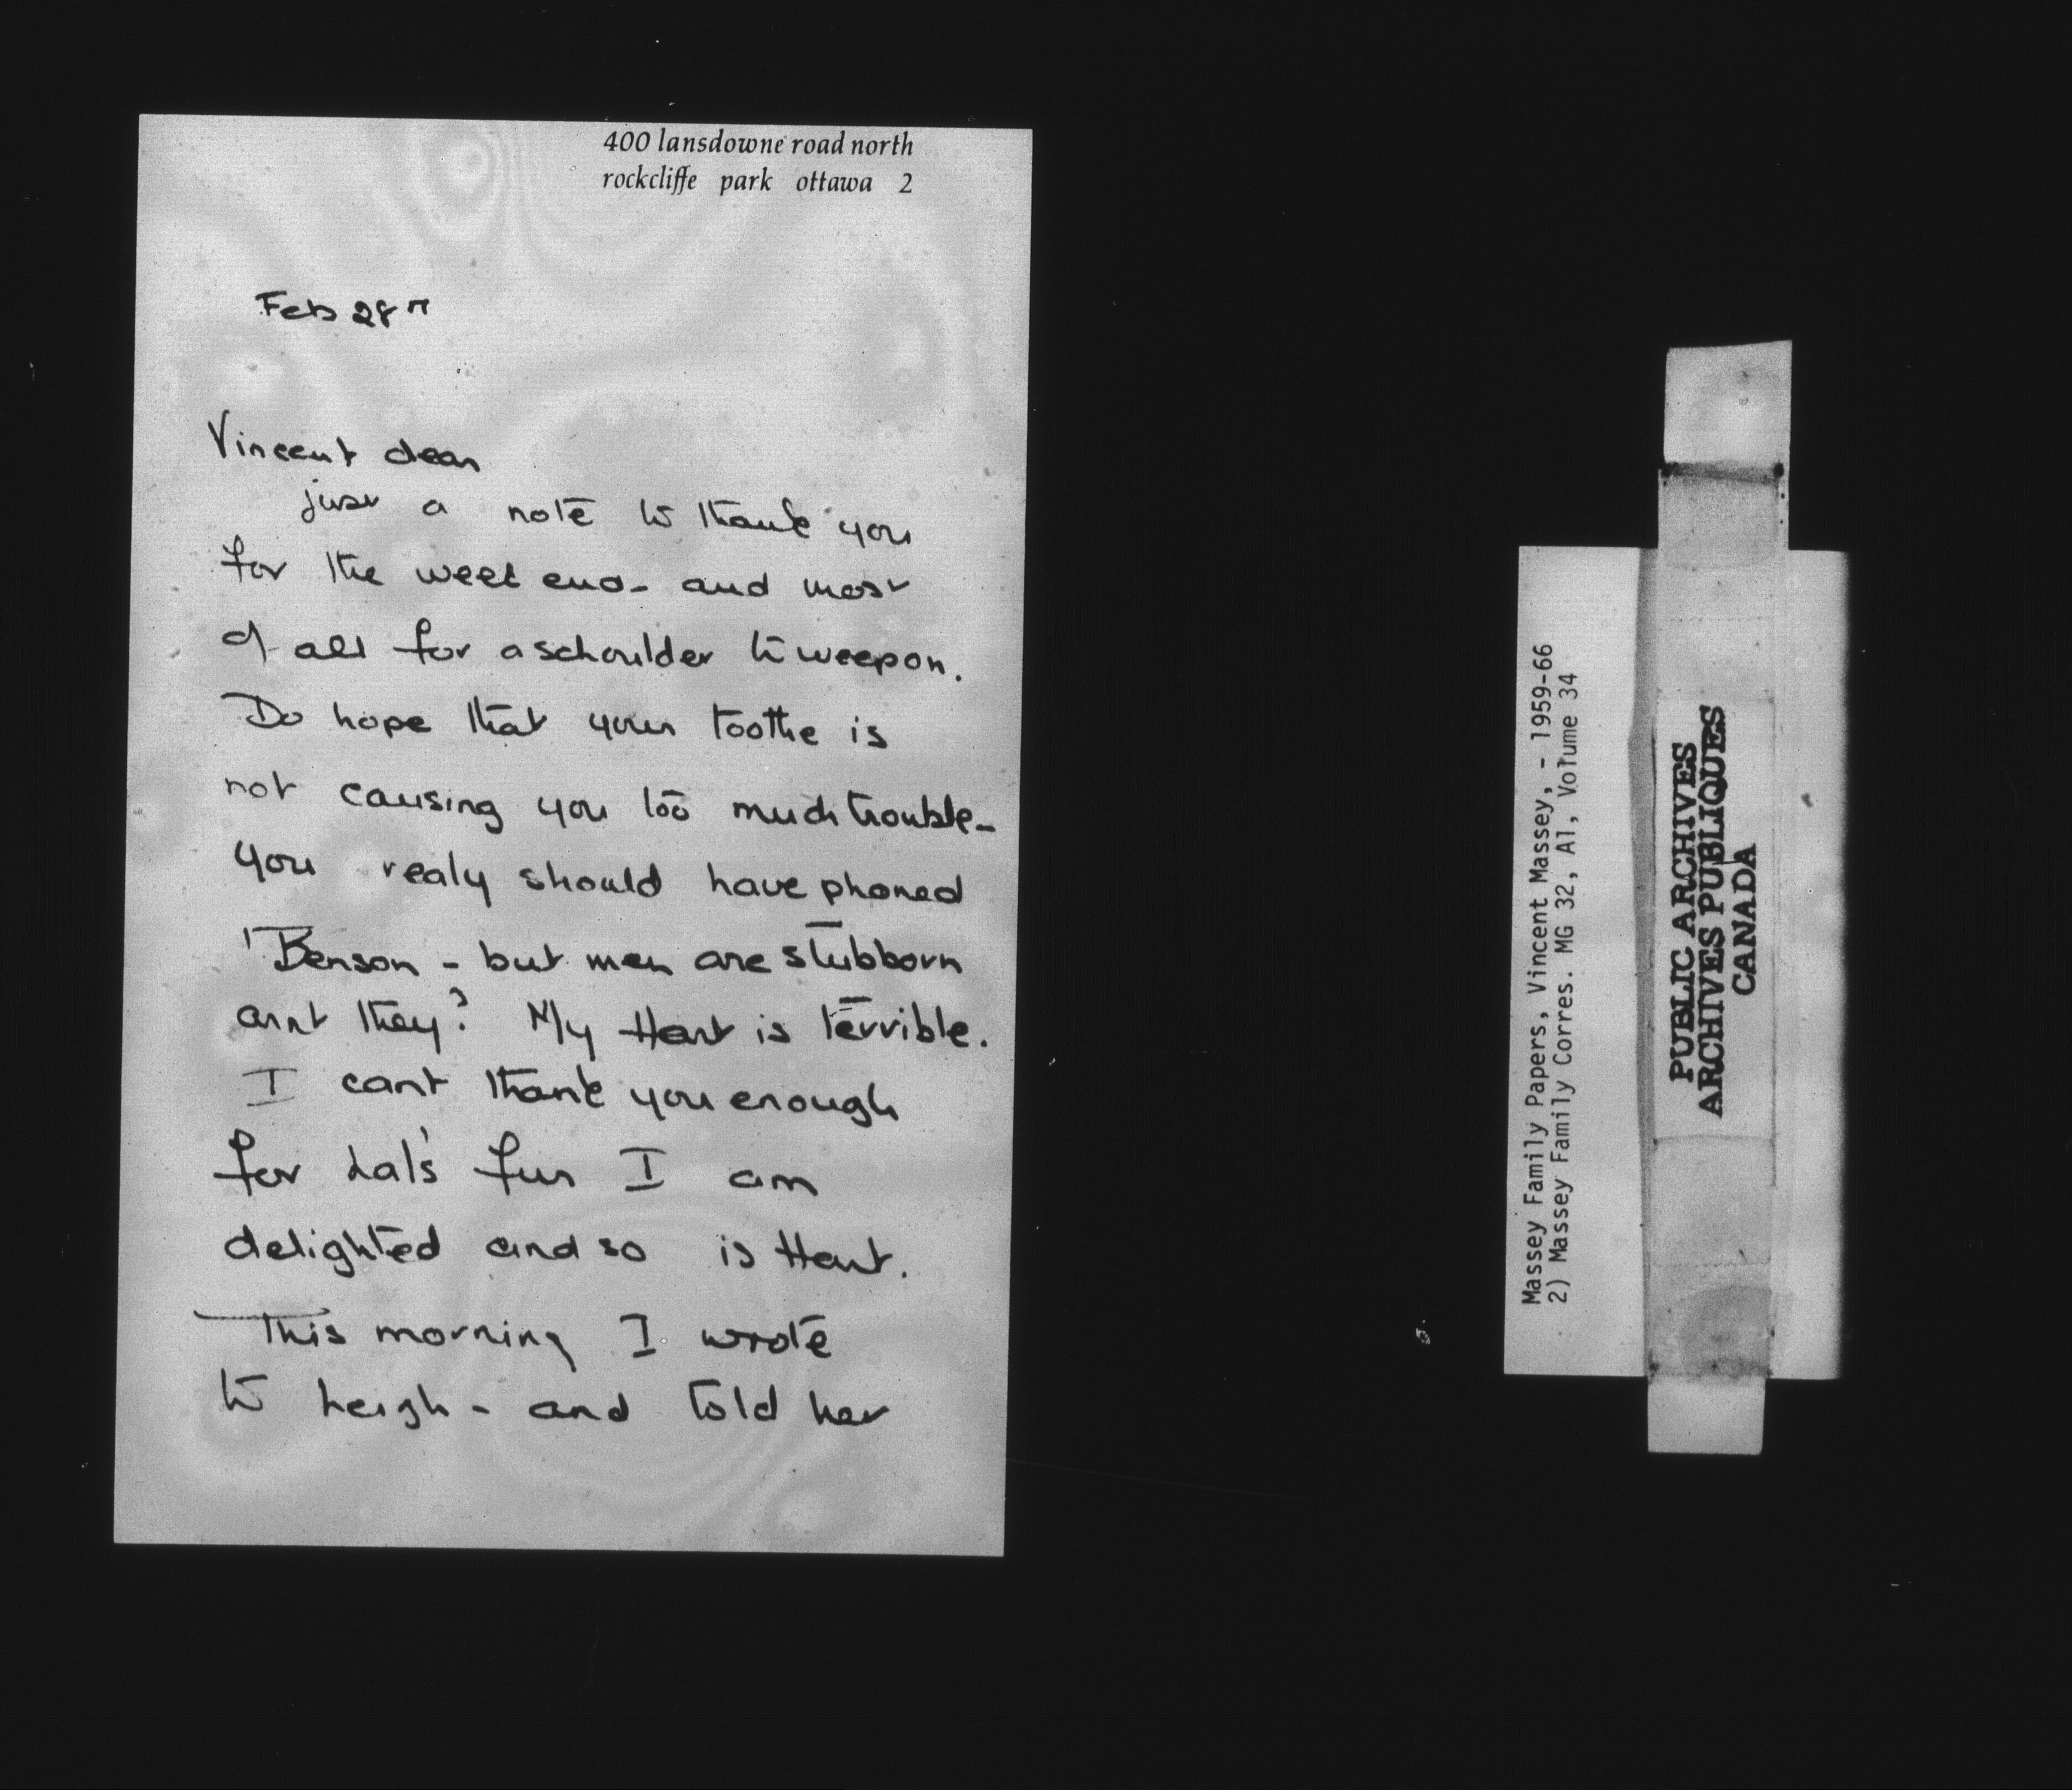 400 lansdowne road north
rockcliffe park ottawa 2
Feb 28th
Vincent dear
just a note to thank you
for the week end - and most
of all for a schoulder to weep on.
Do hope that your toothe is
not causing you too much trouble -
you realy should have phoned
Benson - but men are stubborn
arnt they? My Hart is terrible.
I cant thank you enough
for Lal's fur I am
delighted and so is Hart.
This morning I wrote
to Leigh - and told her
Massey Family Papers, Vincent Massey, - 1959-66
2) Massey Family Corres. MG 32, A1, Volume 34
PUBLIC ARCHIVES
ARCHIVES PUBLIQUES
CANADA